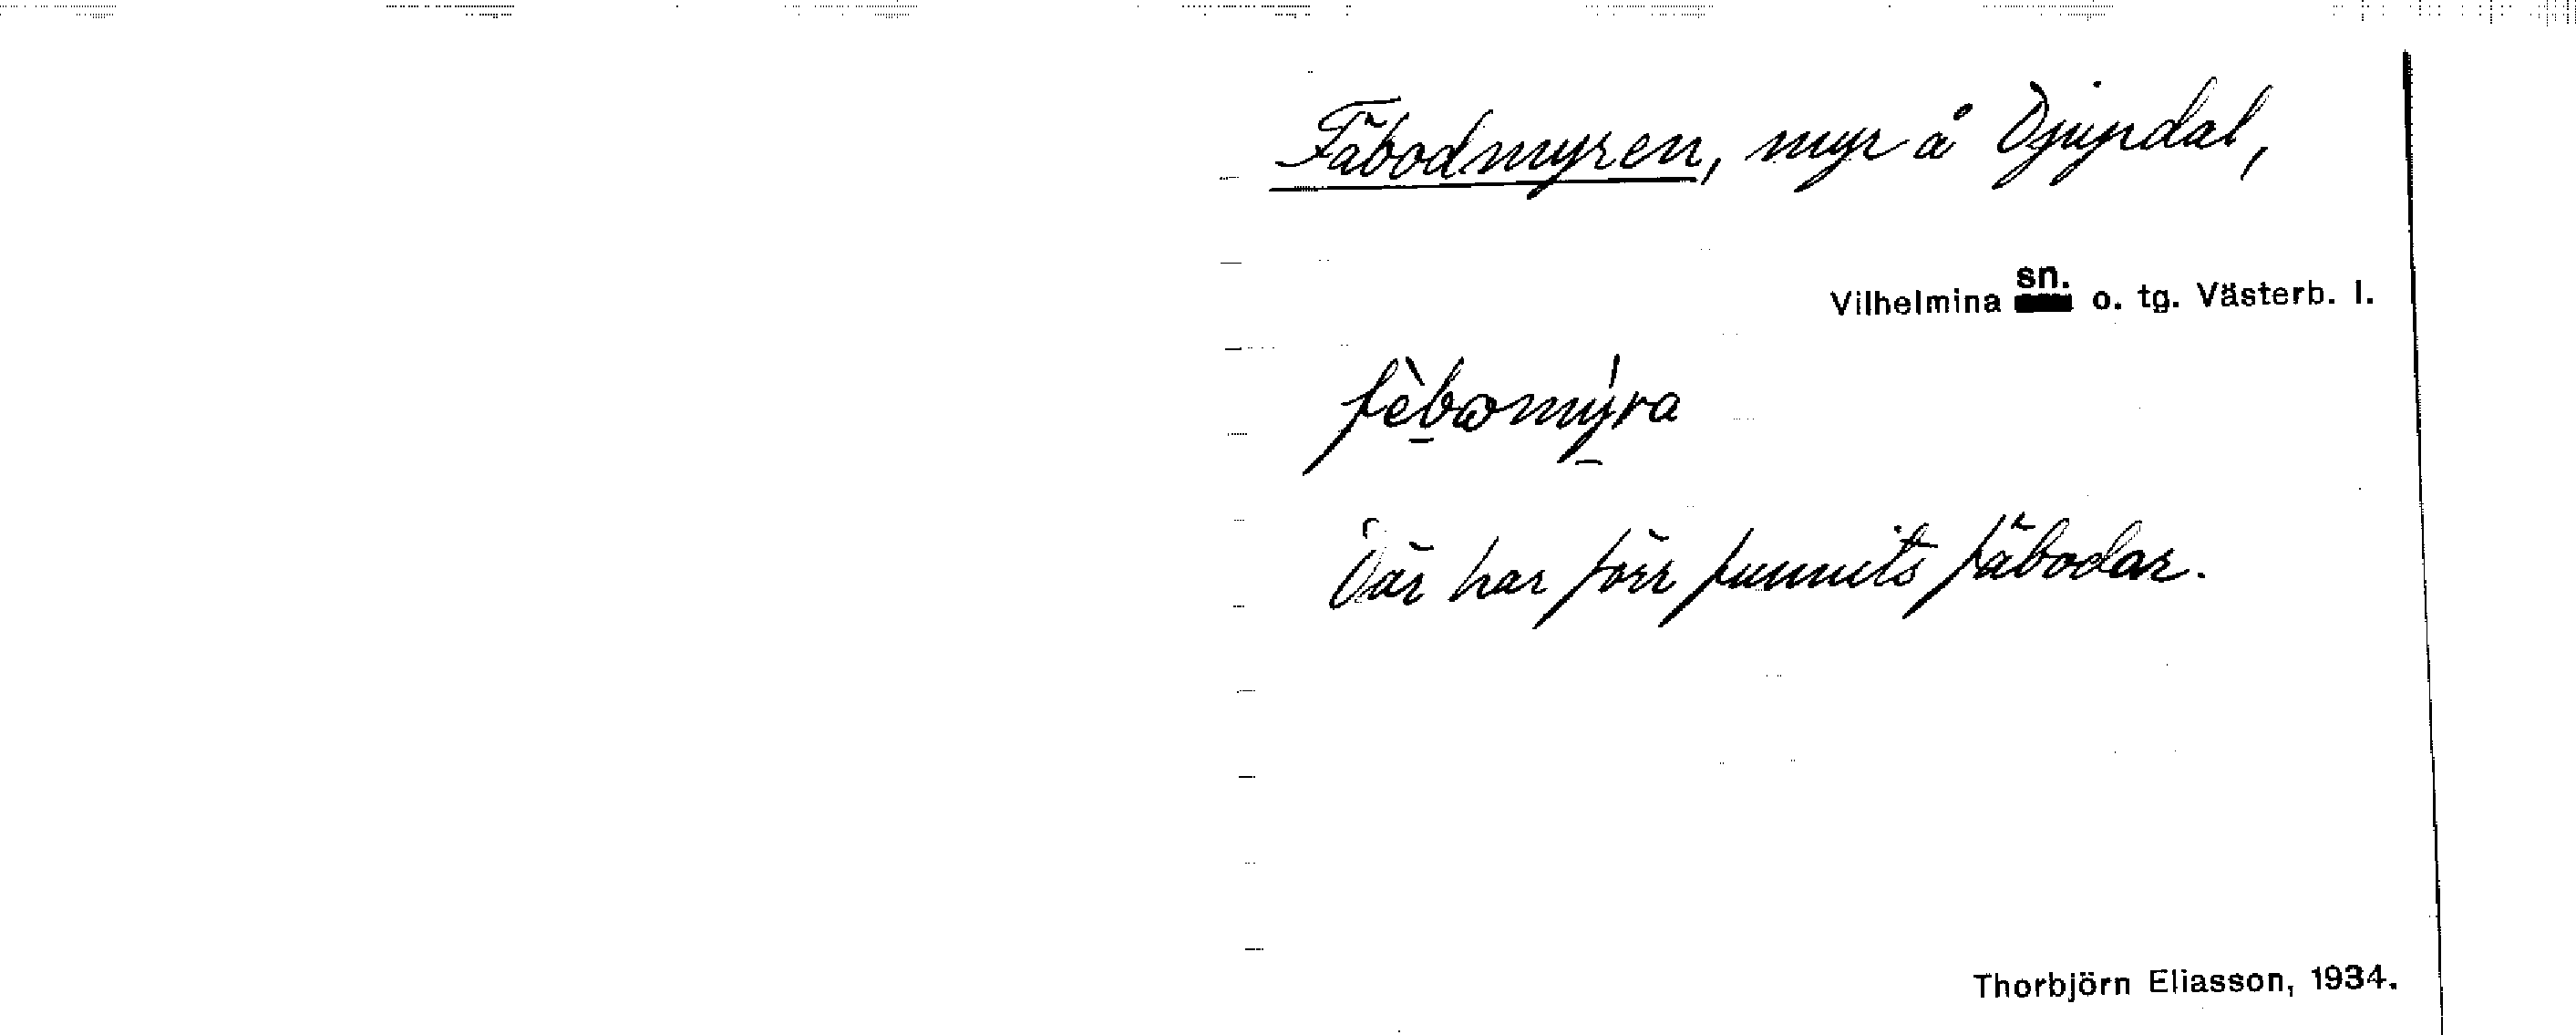 Fäbodmyren, myr å Djupdal,
Vilhelmina sn. o. tg. Västerb. l.
fèbωmýra
Där har förr funnits fäbodar.
Thorbjörn Eliasson, 1934.